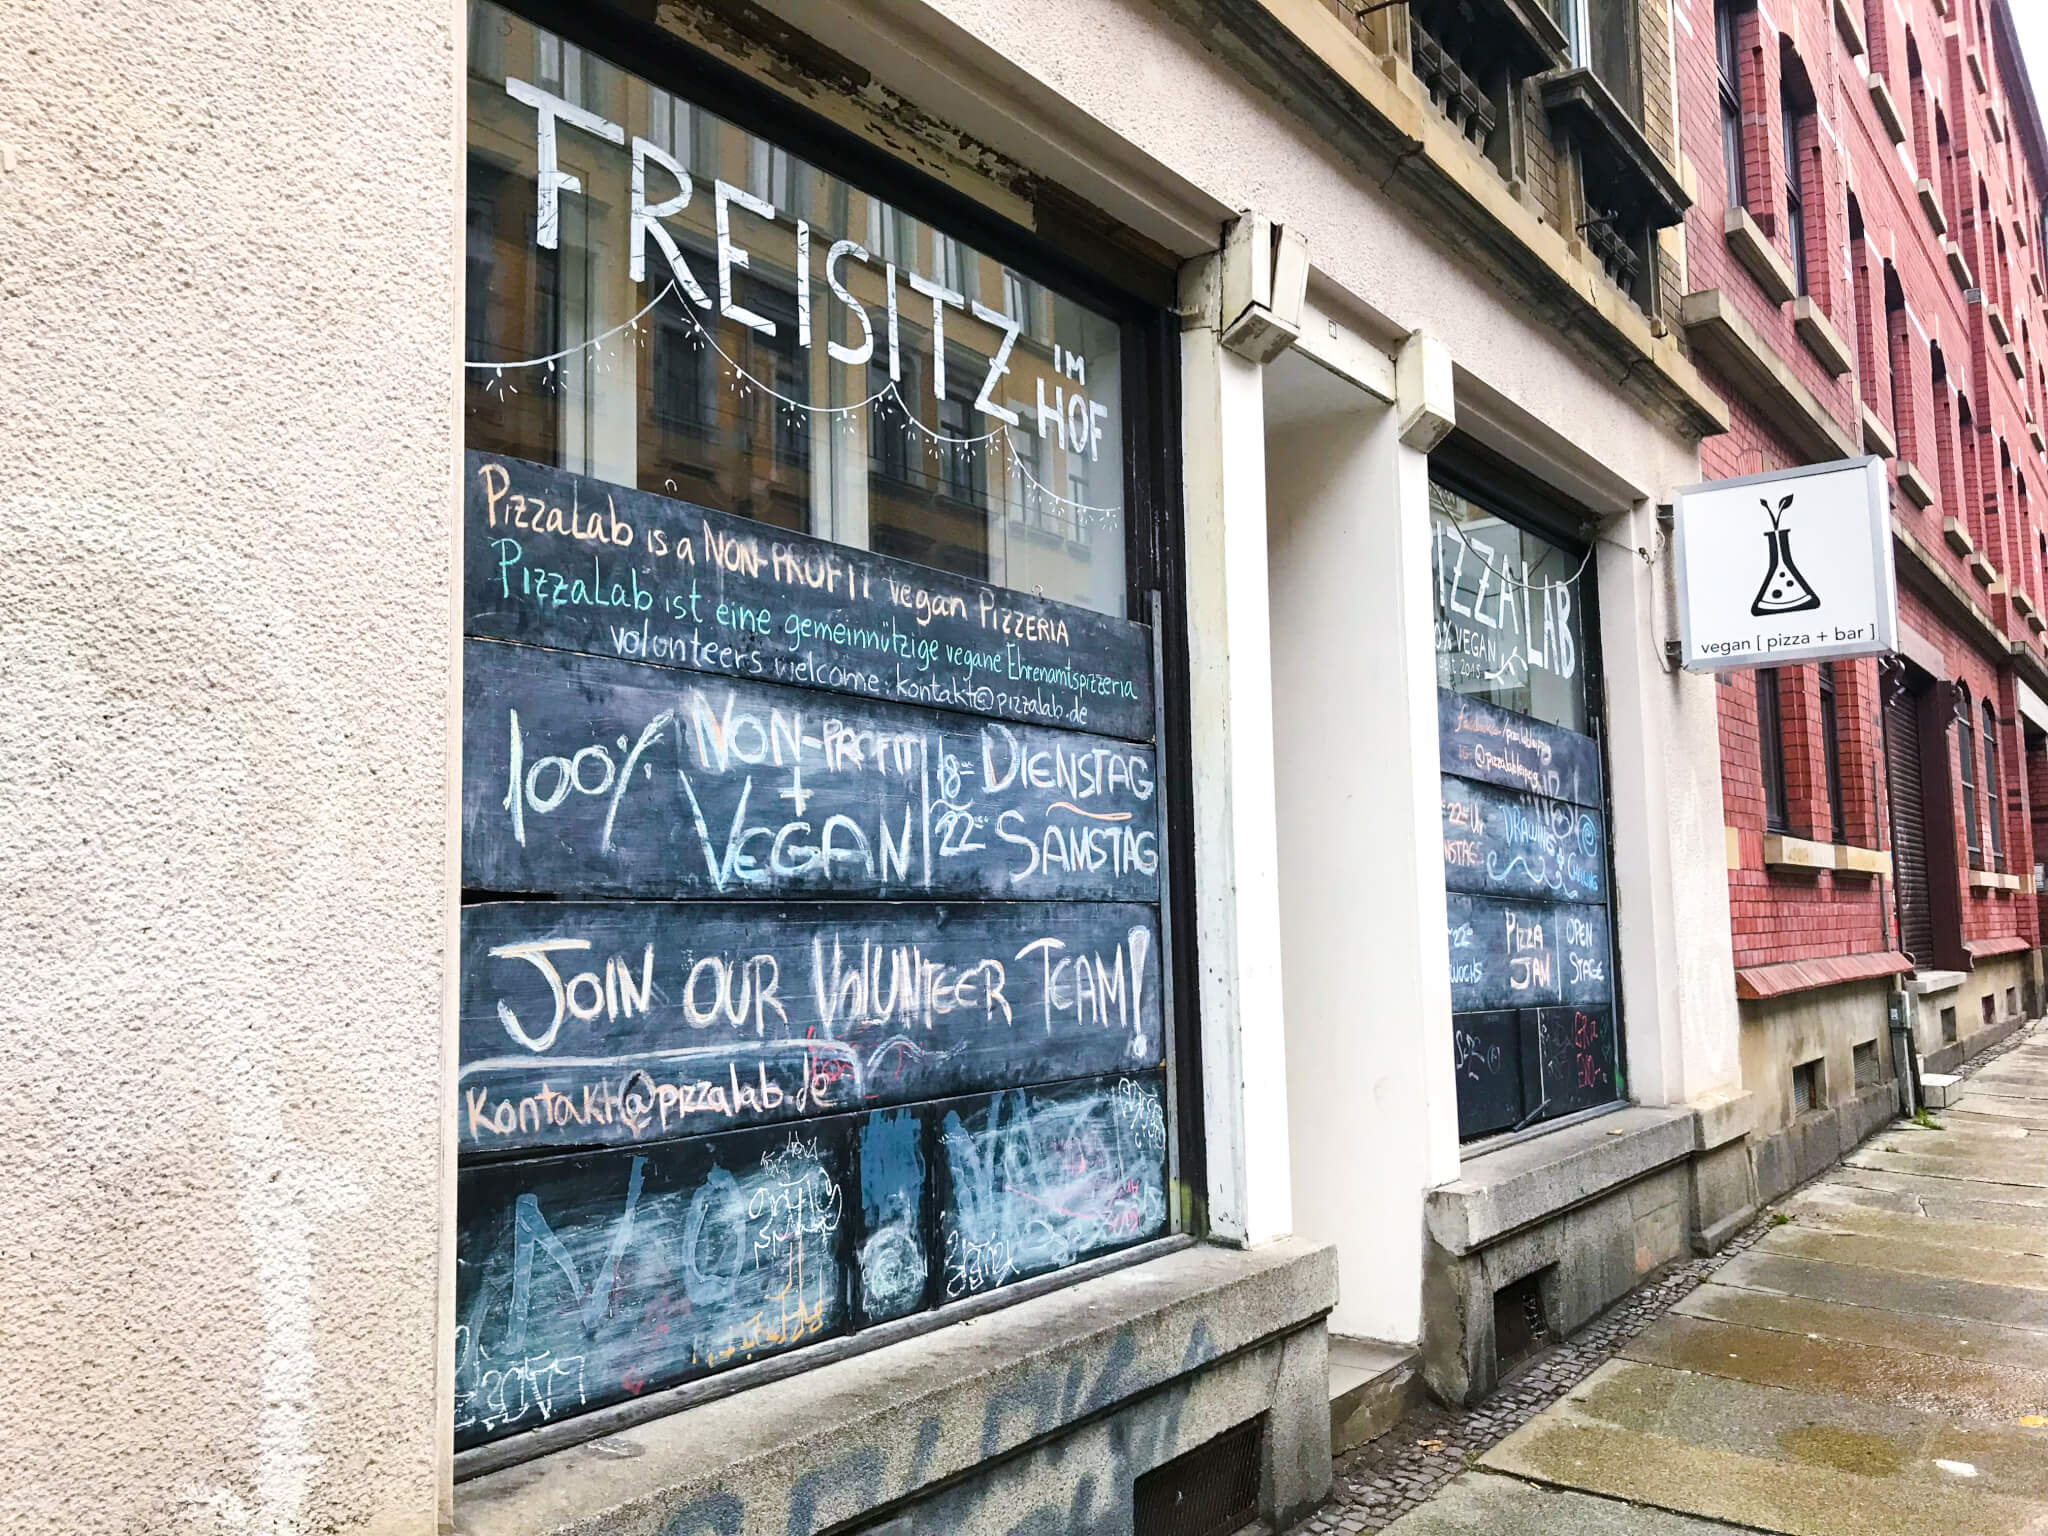 FREISITZ
IM
HOF
PizzaLab is a NON-PROFIT vegan PIZZERIA
PizzaLab ist eine gemeinnützige vegane Ehrenamtspizzeria
volunteers welcome: kontakt@pizzalab.de
100% NON-PROFIT
+
VEGAN
18-
22-
DIENSTAG
SAMSTAG
JOIN OUR VOLUNTEER TEAM!
kontakt@pizzalab.de
NO
IZZA LAB
0% VEGAN
seit 2015
@pizzalableipzig
22
DRAWING &
PIZZA
JAM
OPEN
STAGE
vegan [ pizza + bar ]